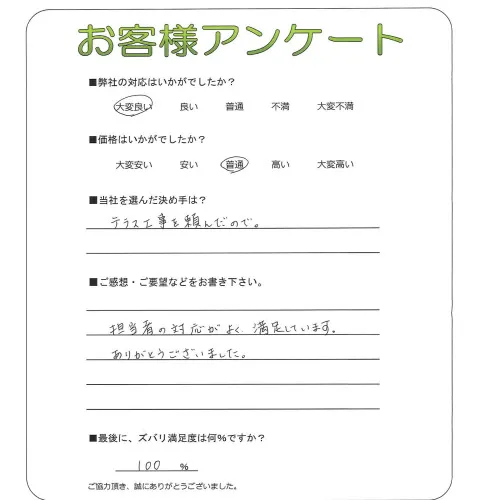 お客様アンケート
■弊社の対応はいかがでしたか？
大変良い 良い 普通 不満 大変不満
■価格はいかがでしたか？
大変安い 安い 普通 高い 大変高い
■当社を選んだ決め手は？
テラス工事を頼んだので。
■ご感想・ご要望などをお書き下さい。
担当者の対応がよく、満足しています。
ありがとうございました。
■最後に、ズバリ満足度は何%ですか？
100 %
ご協力頂き、誠にありがとうございました。